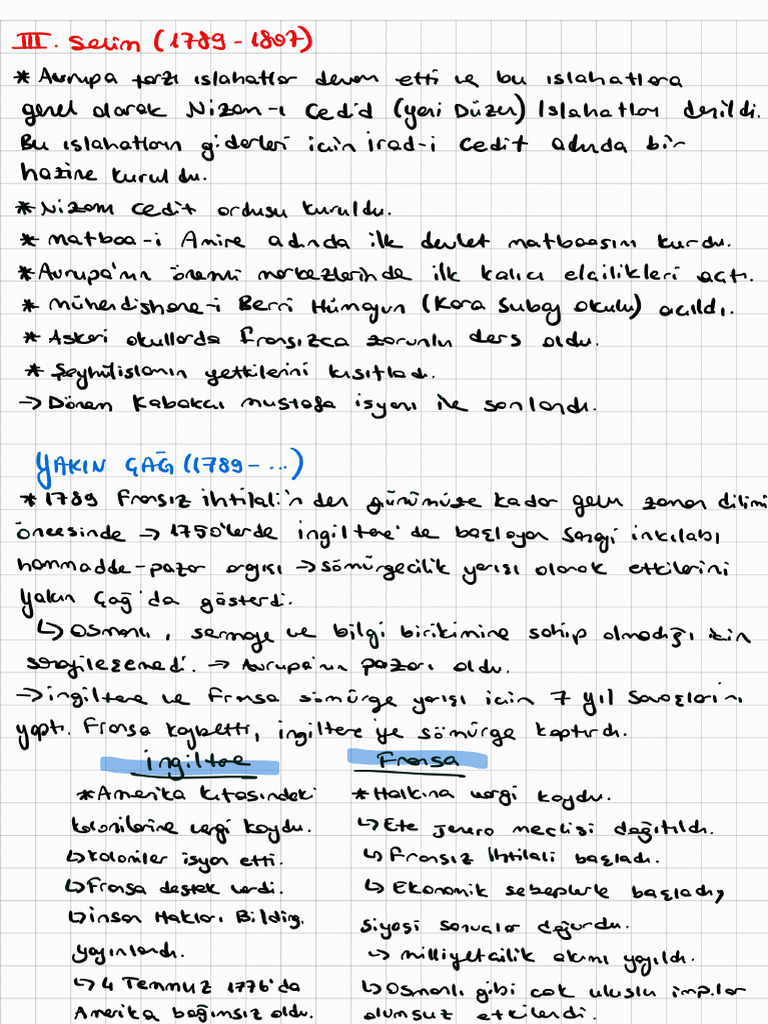 III. Selim (1789 - 1807)
* Avrupa tarzı ıslahatlar devam etti ve bu ıslahatlara
genel olarak Nizam-ı Cedid (yeni Düzen) Islahatları denildi.
Bu ıslahatların giderleri için irad-i cedit adında bir
hazine kuruldu.
* Nizam cedit ordusu kuruldu.
* matbaa-i Amire adında ilk devlet matbaasını kurdu.
* Avrupa'nın önemli merkezlerinde ilk kalıcı elçilikleri açtı.
* mühendishane-i Berri Hümayun (Kara Subay okulu) açıldı.
* Askeri okullarda fransızca zorunlu ders oldu.
* Şeyhülislamın yetkilerini kısıtladı.
→ Dönem Kabakcı mustafa isyanı ile sonlandı.
YAKIN ÇAĞ (1789 - ...)
* 1789 Fransız ihtilali'nden günümüze kadar gelen zaman dilimi
öncesinde → 1750'lerde ingiltere'de başlayan Sanayi inkılabı
hammadde-pazar argısı → sömürgecilik yarışı olarak etkilerini
yakın Çağ'da gösterdi.
↳ Osmanlı, sermaye ve bilgi birikimine sahip olmadığı için
sanayileşemedi. → Avrupa'nın pazarı oldu.
→ ingiltere ve Fransa sömürge yarışı için 7 yıl savaşlarını
yaptı. Fransa kaybetti, ingiltere'ye sömürge kaptırdı.
ingiltere
* Amerika kıtasındaki
kolonilerine vergi koydu.
↳ koloniler isyan etti.
↳ Fransa destek verdi.
↳ insan Hakları Bildirg.
yayınlandı.
↳ 4 Temmuz 1776'da
Amerika bağımsız oldu.
Fransa
* Halkına vergi koydu.
↳ Ete jenero meclisi dağıtıldı.
↳ Fransız İhtilali başladı.
↳ Ekonomik sebeplerle başladı,
siyasi sonuçlar doğurdu.
↳ milliyetcilik akımı yayıldı.
↳ Osmanlı gibi cok uluslu imp.lar
olumsuz etkilendi.